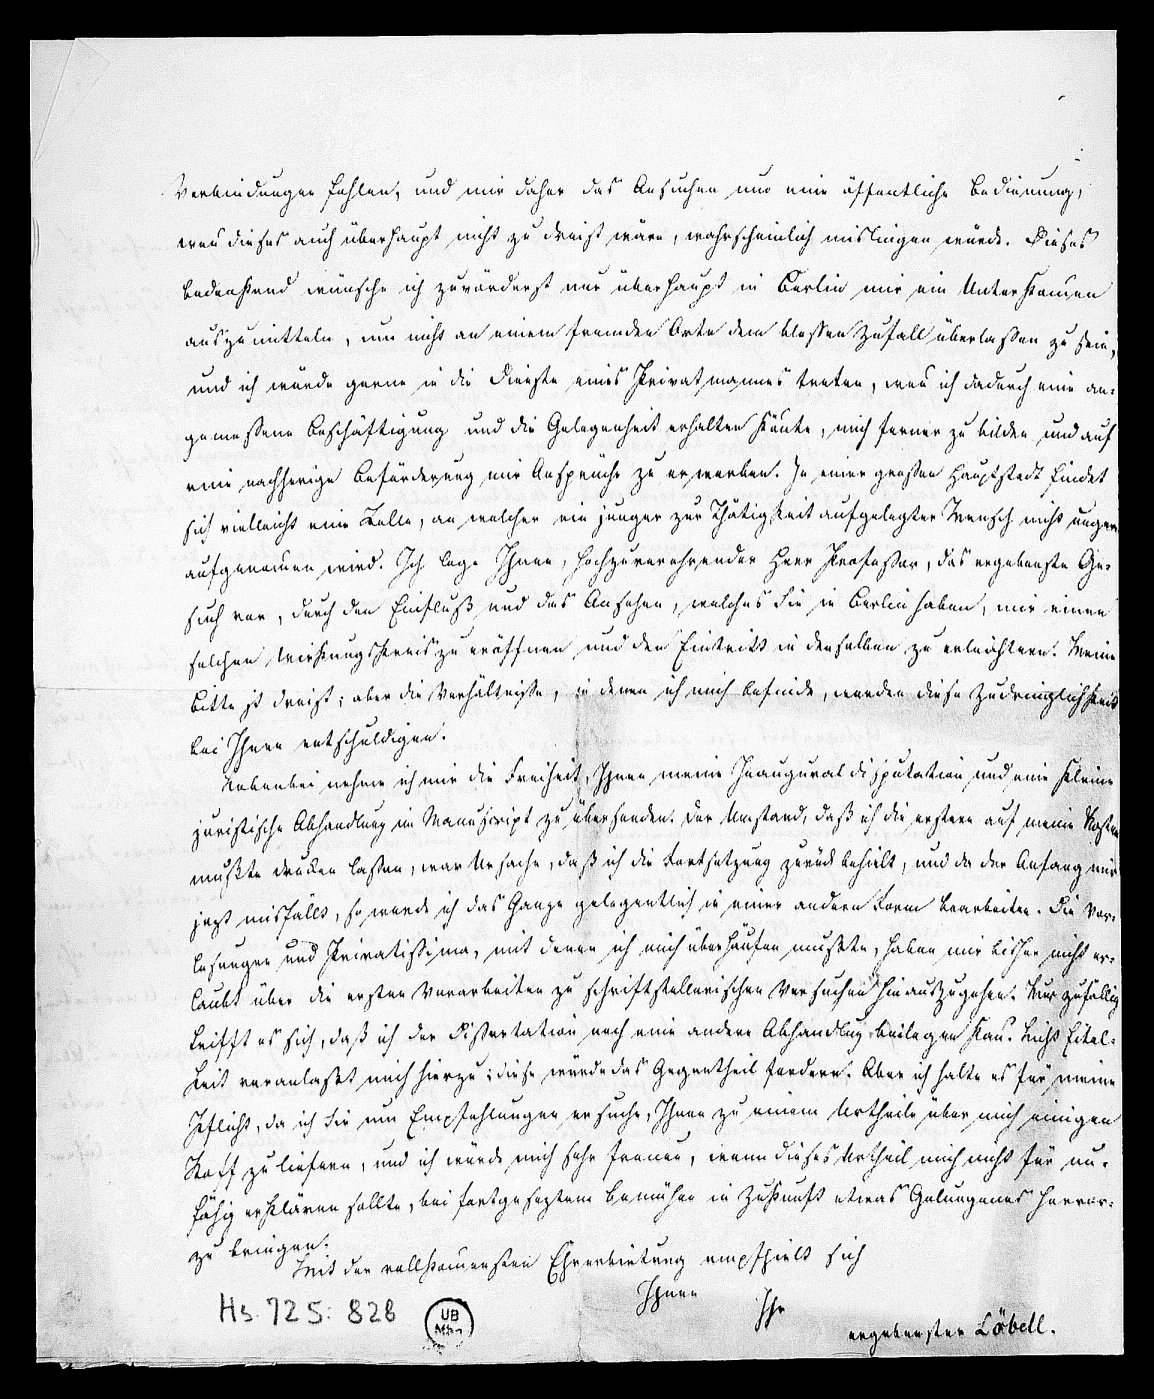 Verbindungen fehlen, und mir daher das Ansuchen um eine öffentliche Bedienung,
wenn dieses auch überhaupt nicht zu dreist wäre, wahrscheinlich mislingen würde. Dieses
bedenkend wünsche ich zuvörderst nur überhaupt in Berlin mir ein Unterkomen
auszumitteln, um nicht an einem fremden Orte dem blossen Zufall überlassen zu sein,
und ich würde gerne in die Dienste eines Privatmannes treten, wenn ich dadurch eine an-
gemessene Beschäftigung und die Gelegenheit erhalten könte, mich ferner zu bilden und auf
eine nachherige Beförderung mir Ansprüche zu erwerben. In einer grossen Hauptstadt findet
sich vielleicht eine Stelle, an welcher ein junger zur Thätigkeit aufgelegter Mensch nicht ungern
aufgenomen wird. Ich lege Ihnen, hochzuverehrender Herr Professor, das ergebenste Ge-
such vor, durch den Einfluß und das Ansehen, welches Sie in Berlin haben, mir einen
solchen Wirkungskreis zu eröffnen und den Eintritt in denselben zu erleichtern. Meine
Bitte ist dreist; aber die Verhältnisse, in denen ich mich befinde, werden diese Zudringlichkeit
bei Ihnen entschuldigen.
Nebenbei nehme ich mir die Freiheit, Ihnen meine Inauguraldisputation und eine kleine
juristische Abhandlung im Manuscript zu übersenden. Der Umstand, daß ich die erstere auf meine Kosten
mußte drucken lassen, war Ursache, daß ich die Fortsetzung zurück behielt, und da der Anfang mir
jezt misfällt, so werde ich das Ganze gelegentlich in einer andern Form bearbeiten. Die Vor-
lesungen und Privatissima, mit denen ich mich überhäufen musste, haben mir bisher nicht er-
laubt über die ersten Vorarbeiten zu schriftstellerischen Versuchen hinauszugehen. Nur zufällig
trifft es sich, daß ich der Dissertation noch eine andere Abhandlung beilegen kan. Nicht Eitel-
keit veranlaßt mich hierzu; diese würde das Gegentheil fordern. Aber ich halte es für meine
Pflicht, da ich Sie um Empfehlungen ersuche, Ihnen zu einem Urtheile über mich einigen
Stoff zu liefern, und ich würde mich sehr freuen, wenn dieses Urtheil mich nicht für un-
fähig erklären sollte, bei fortgeseztem Bemühen in Zukunft etwas Gelungenes hervor-
zu bringen.
Mit der vollkomensten Ehrerbietung empfhielt sich
Ihnen
Ihr
ergebenster Löbell.
Hs. 725: 828
UB